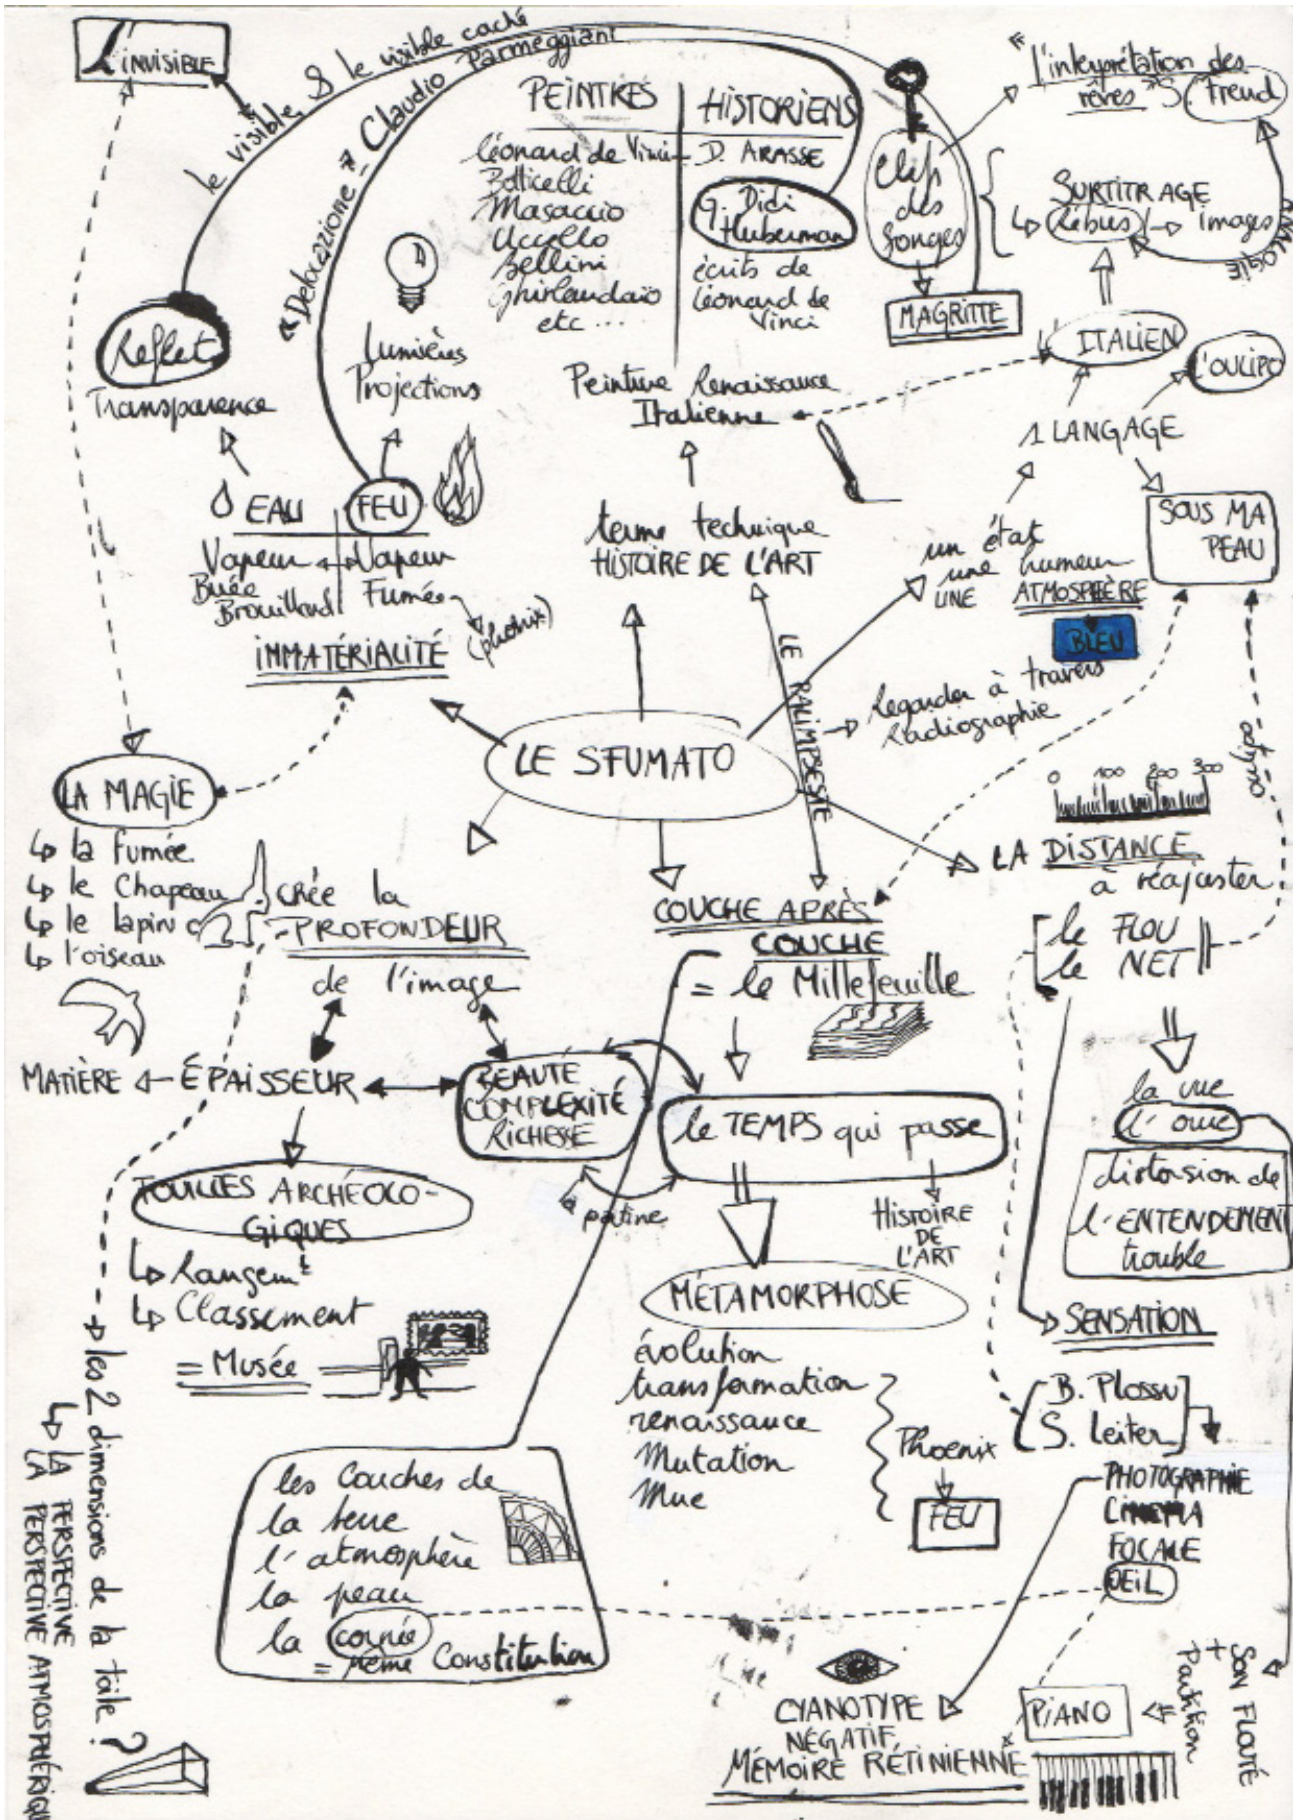 L'INVISIBLE
le visible & le visible caché
"Delocazione" Claudio Parmeggiani
PEINTRES
Léonard de Vinci
Botticelli
Masaccio
Uccello
Bellini
Ghirlandaïo
etc ....
HISTORIENS
D. ARASSE
G. Didi
Huberman
écrits de
Léonard de
Vinci
Clef
des
Songes
MAGRITTE
"L'interprétation des
rêves" S. Freud
SURTITRAGE
Rébus → images
ANALOGIE
ITALIEN
L'OULIPO
1 LANGAGE
SOUS MA
PEAU
Reflet
Transparence
Lumières
Projections
EAU
Vapeur
Buée
Brouillard
FEU
Vapeur
Fumée
(phœnix)
IMMATÉRIALITÉ
Peinture Renaissance
Italienne
terme technique
HISTOIRE DE L'ART
un état
une humeur
UNE ATMOSPHÈRE
BLEU
LE PALIMPSESTE
Regarder à travers
Radiographie
LE SFUMATO
LA MAGIE
↳ la fumée
↳ le Chapeau
↳ le lapin
↳ l'oiseau
crée la
PROFONDEUR
de l'image
COUCHE APRÈS
COUCHE
= le Millefeuille
0 100 200 300
LA DISTANCE
à réajuster
le FLOU
le NET
MATIÈRE ← ÉPAISSEUR
BEAUTÉ
COMPLEXITÉ
RICHESSE
le TEMPS qui passe
la patine
HISTOIRE
DE
L'ART
la vue
l'ouïe
distorsion de
l'ENTENDEMENT
trouble
SENSATION
FOUILLES ARCHÉOLO-
GIQUES
↳ Rangemt
↳ Classement
= Musée
MÉTAMORPHOSE
évolution
transformation
renaissance
Mutation
Mue
Phoenix
FEU
B. Plossu
S. Leiter
PHOTOGRAPHIE
CINEMA
FOCALE
OEIL
les Couches de
la terre
l'atmosphère
la peau
la cornée
= même Constitution
→ les 2 dimensions de la toile ?
↳ LA PERSPECTIVE
↳ LA PERSPECTIVE ATMOSPHÉRIQU
CYANOTYPE
NÉGATIF
MÉMOIRE RÉTINIENNE
PIANO
SON FLOUTÉ
+
Partition